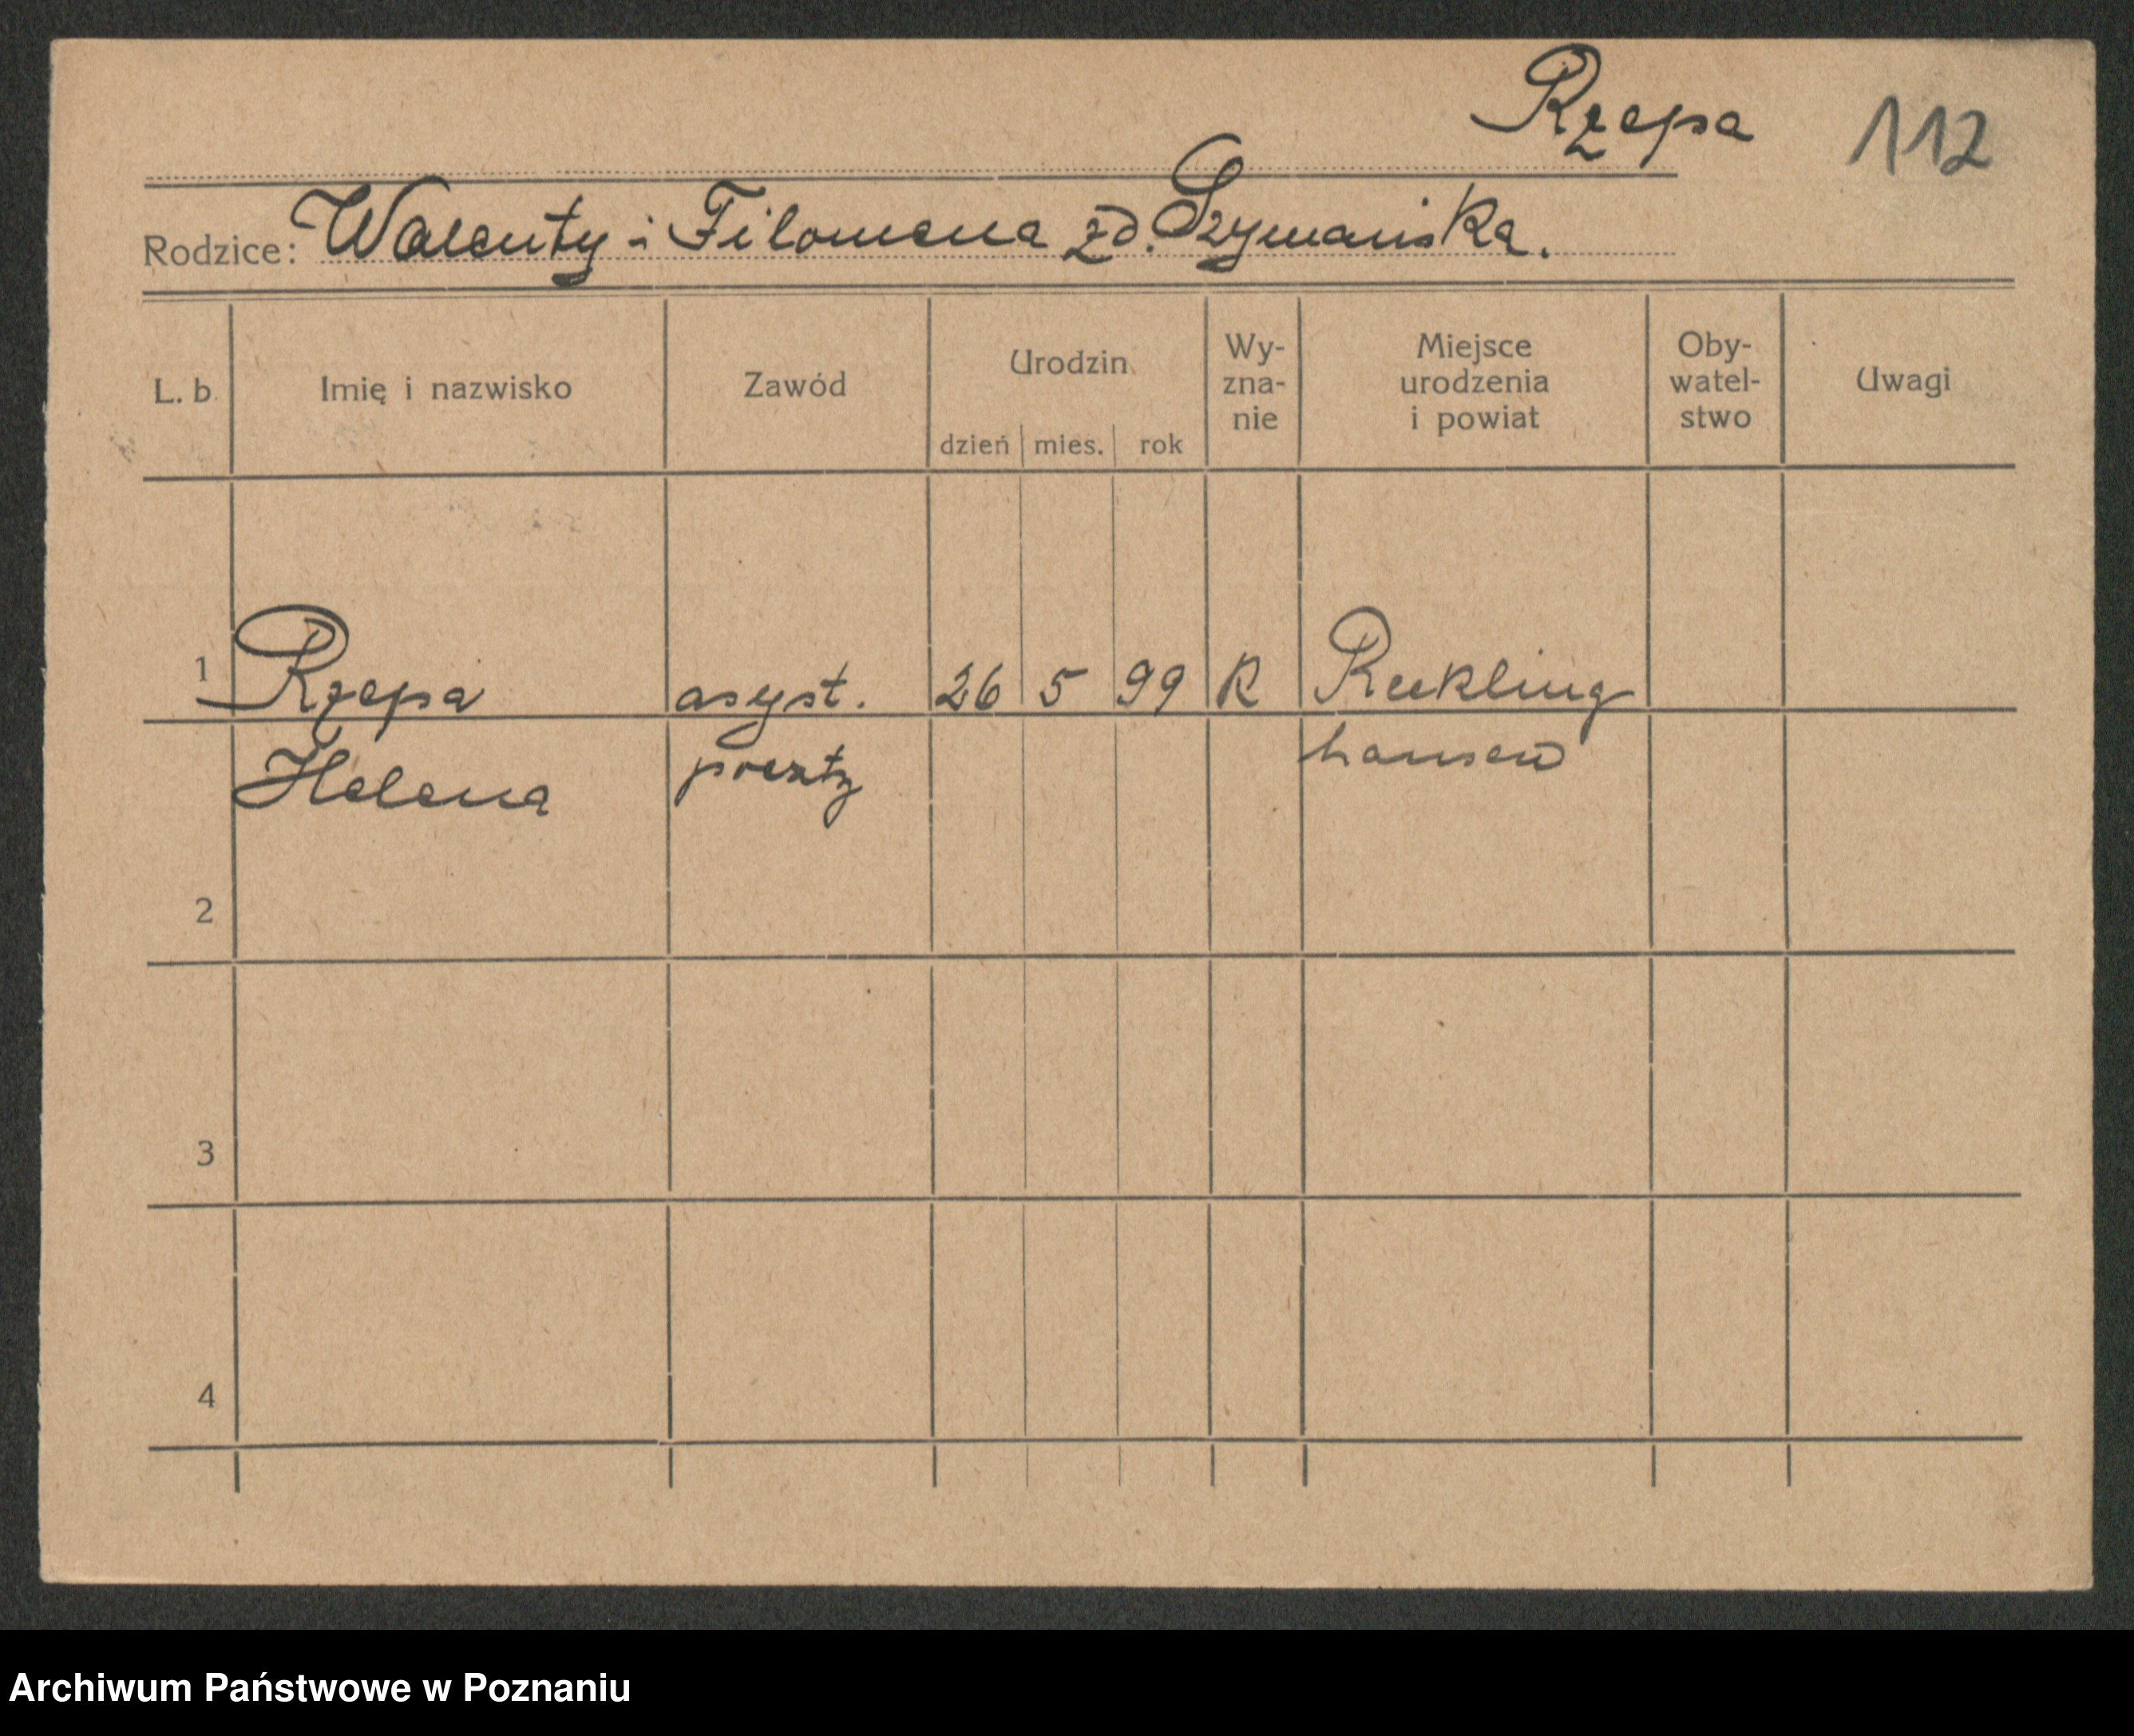 Rzepa 112
Rodzice: Walenty i Filomena zd. Szymańska.
L. b. Imię i nazwisko Zawód Urodzin Wy- zna- nie Miejsce urodzenia i powiat Oby- watel- stwo Uwagi
dzień mies. rok
1 Rzepa asyst. 26 5 99 R Reckling
Helena poczty hausen
2
3
4
Archiwum Państwowe w Poznaniu